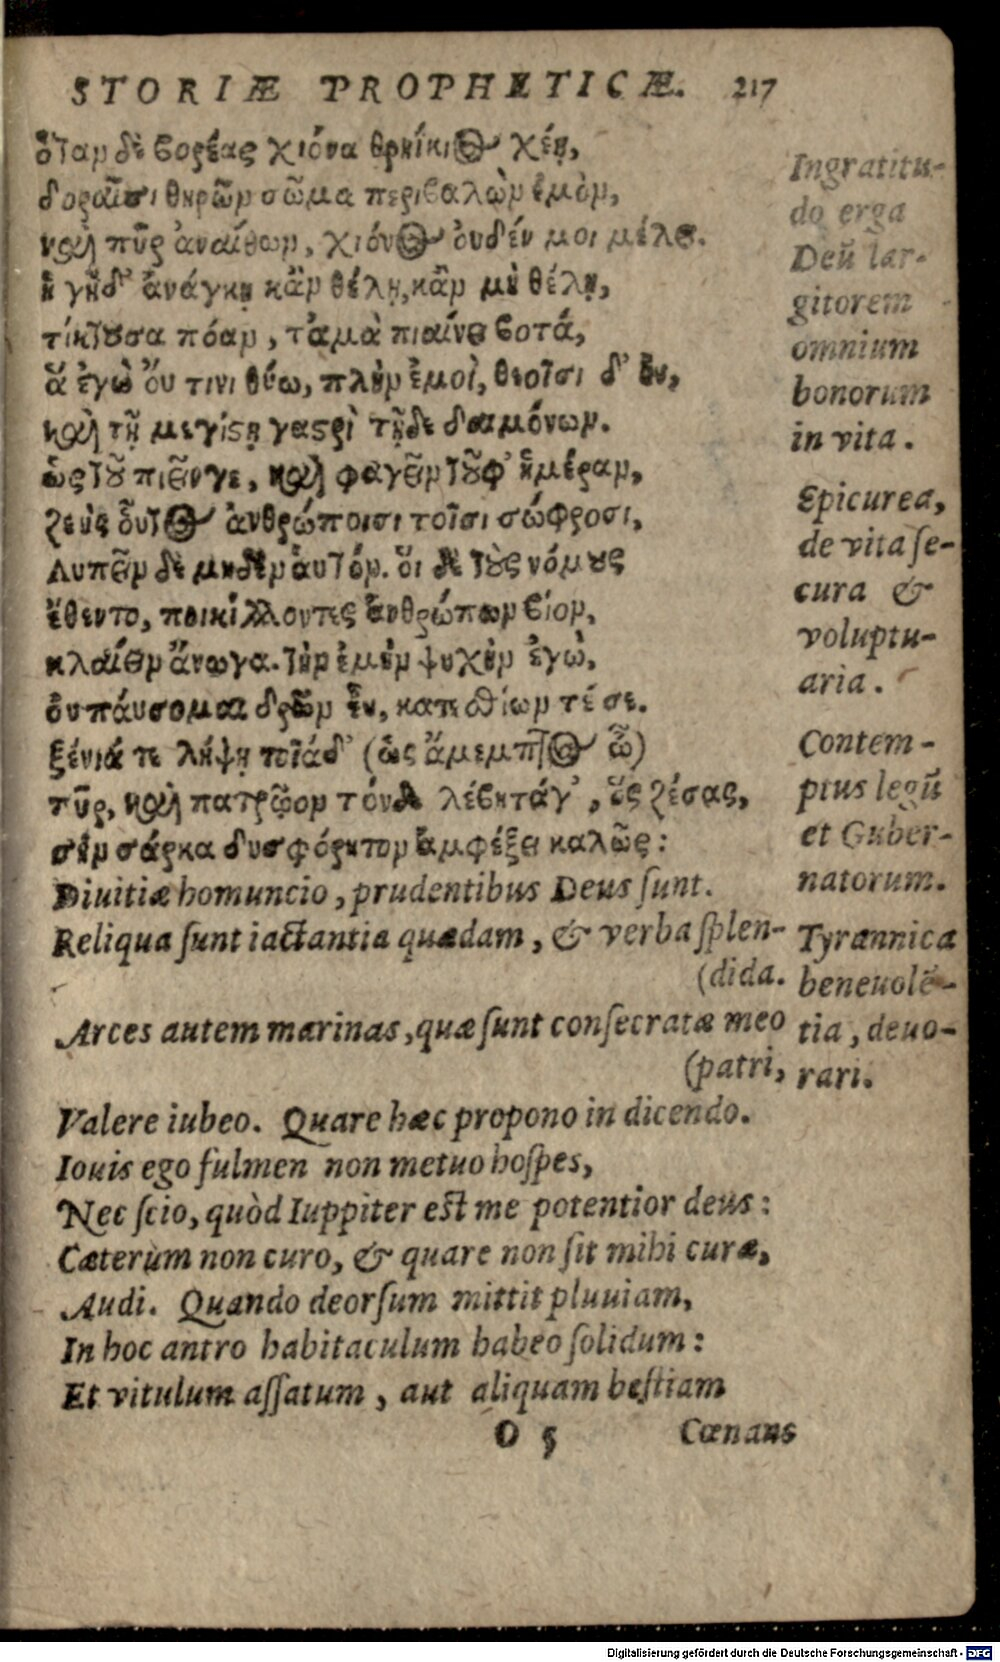 STORIÆ PROPHETICÆ. 217
ὅταν δὲ βορέας χιόνα θρηίκιος χέῃ,
δοραῖσι θηρῶν σῶμα περιβαλὼν ἐμὸν,
καὶ πῦρ ἀναίθων, χιόνος ὀυδέν μοι μέλει.
ἡ γῆ δ' ἀνάγκῃ κἂν θέλῃ, κἂν μὴ θέλῃ,
τίκτουσα πόαν, τἀμὰ πιαίνει βοτά,
ἃ ἐγὼ ὄυ τινι θύω, πλὴν ἐμοὶ, θεοῖσι δ' ὂυ,
καὶ τῇ μεγίστῃ γαστρὶ τῇδε δαιμόνων.
ὡς τοῦ πιεῖν γε, καὶ φαγεῖν τοῦφ' ἡμέραν,
ζεὺς ὅυτος ἀνθρώποισι τοῖσι σώφροσι,
λυπεῖν δὲ μηδὲν ἁυτόν. ὅι δὲ τοὺς νόμους
ἔθεντο, ποικίλλοντες ἀνθρώπων βίον,
κλαίειν ἄνωγα. τὴν ἐμὴν ψυχὴν ἐγὼ,
ὀυ πάυσομαι δρῶν ἐυ, κατεσθίων τέ σε.
ξένιά τε λήψῃ τοιάδ' (ὡς ἄμεμπτος ὦ)
πῦρ, καὶ πατρῷον τόνδε λέβητά γ', ὃς ζέσας,
σὴν σάρκα δυσφόρητον ἀμφέξει καλῶς:
Diuitiæ homuncio, prudentibus Deus sunt.
Reliqua sunt iactantia quædam, & verba splen-
(dida.
Arces autem marinas, quæ sunt consecratæ meo
(patri,
Valere iubeo. Quare hæc propono in dicendo.
Iouis ego fulmen non metuo hospes,
Nec scio, quòd Iuppiter est me potentior deus:
Cæterùm non curo, & quare non sit mihi curæ,
Audi. Quando deorsum mittit pluuiam,
In hoc antro habitaculum habeo solidum:
Et vitulum assatum, aut aliquam bestiam
O 5 Cœnans
Ingratitu-
do erga
Deū lar-
gitorem
omnium
bonorum
in vita.
Epicurea,
de vita se-
cura &
voluptu-
aria.
Contem-
ptus legū
et Guber-
natorum.
Tyrannica
beneuolē-
tia, deuo-
rari.
Digitalisierung gefördert durch die Deutsche Forschungsgemeinschaft - DFG